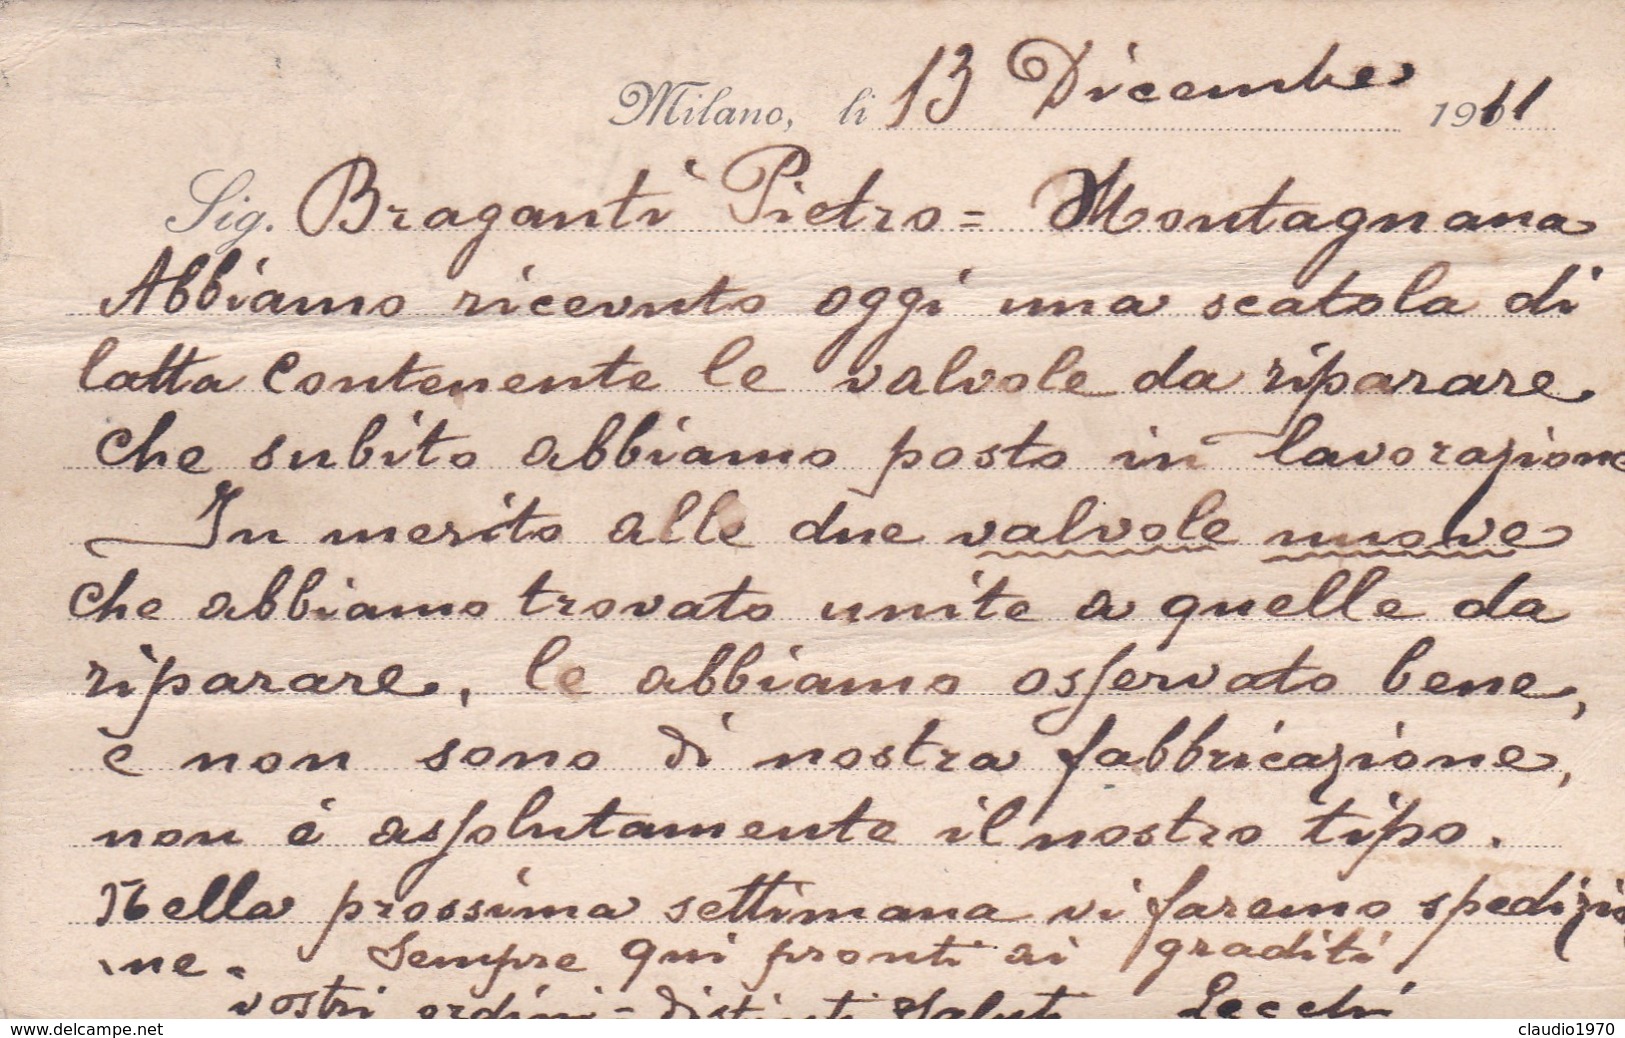 Milano, li 13 Dicembre 1911
Sig. Braganti Pietro = Montagnana
Abbiamo ricevuto oggi una scatola di
latta contenente le valvole da riparare
che subito abbiamo posto in lavorazione
In merito alle due valvole nuove
che abbiamo trovato unite a quelle da
riparare, le abbiamo osservato bene,
e non sono di nostra fabbricazione,
non è assolutamente il nostro tipo.
Nella prossima settimana vi faremo spedizio
ne. Sempre qui pronti ai graditi
vostri ordini = distinti saluti Lecchi
delcampe.net
claudio1970